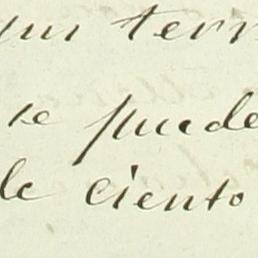 terr
se puede
de ciento